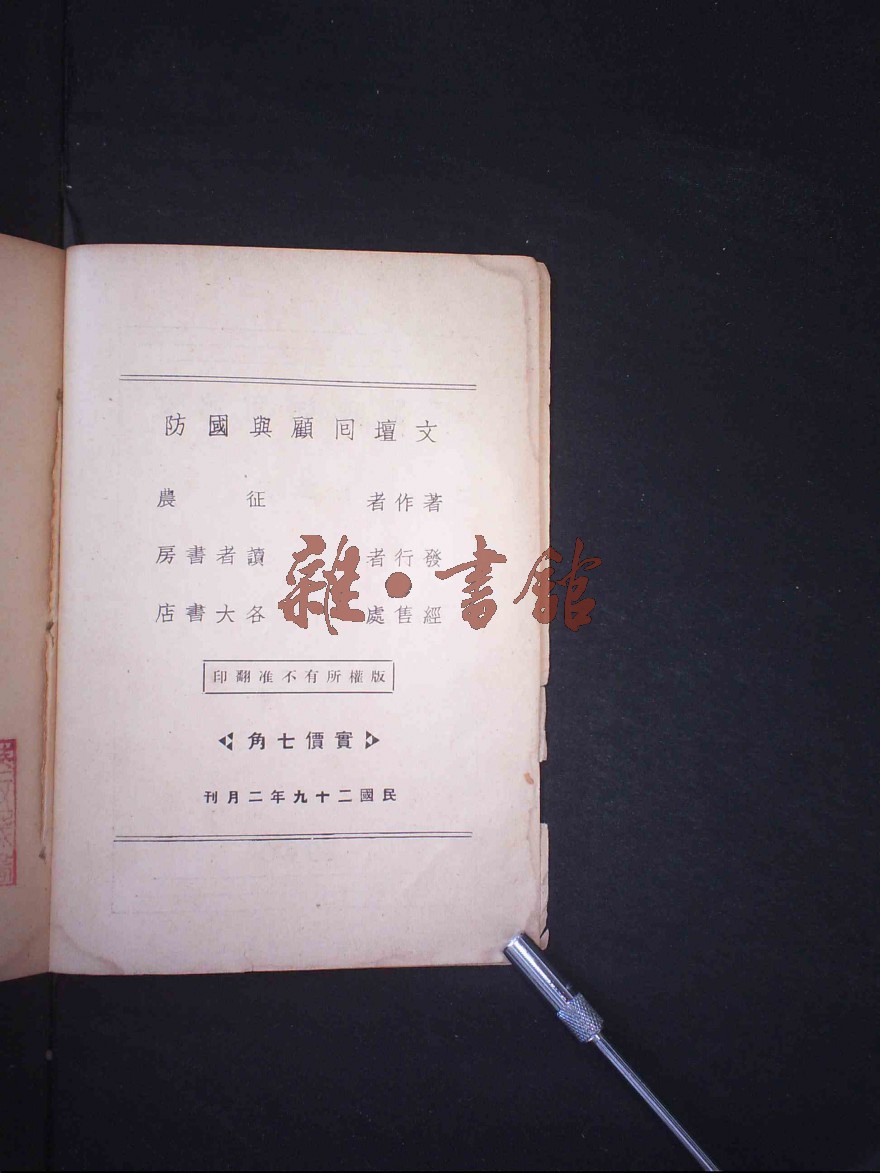 文壇囘顧與國防
著作者 征農
發行者 讀者書房
經售處 各大書店
版權所有不准翻印
實價七角
民國二十九年二月刊
雜·書館